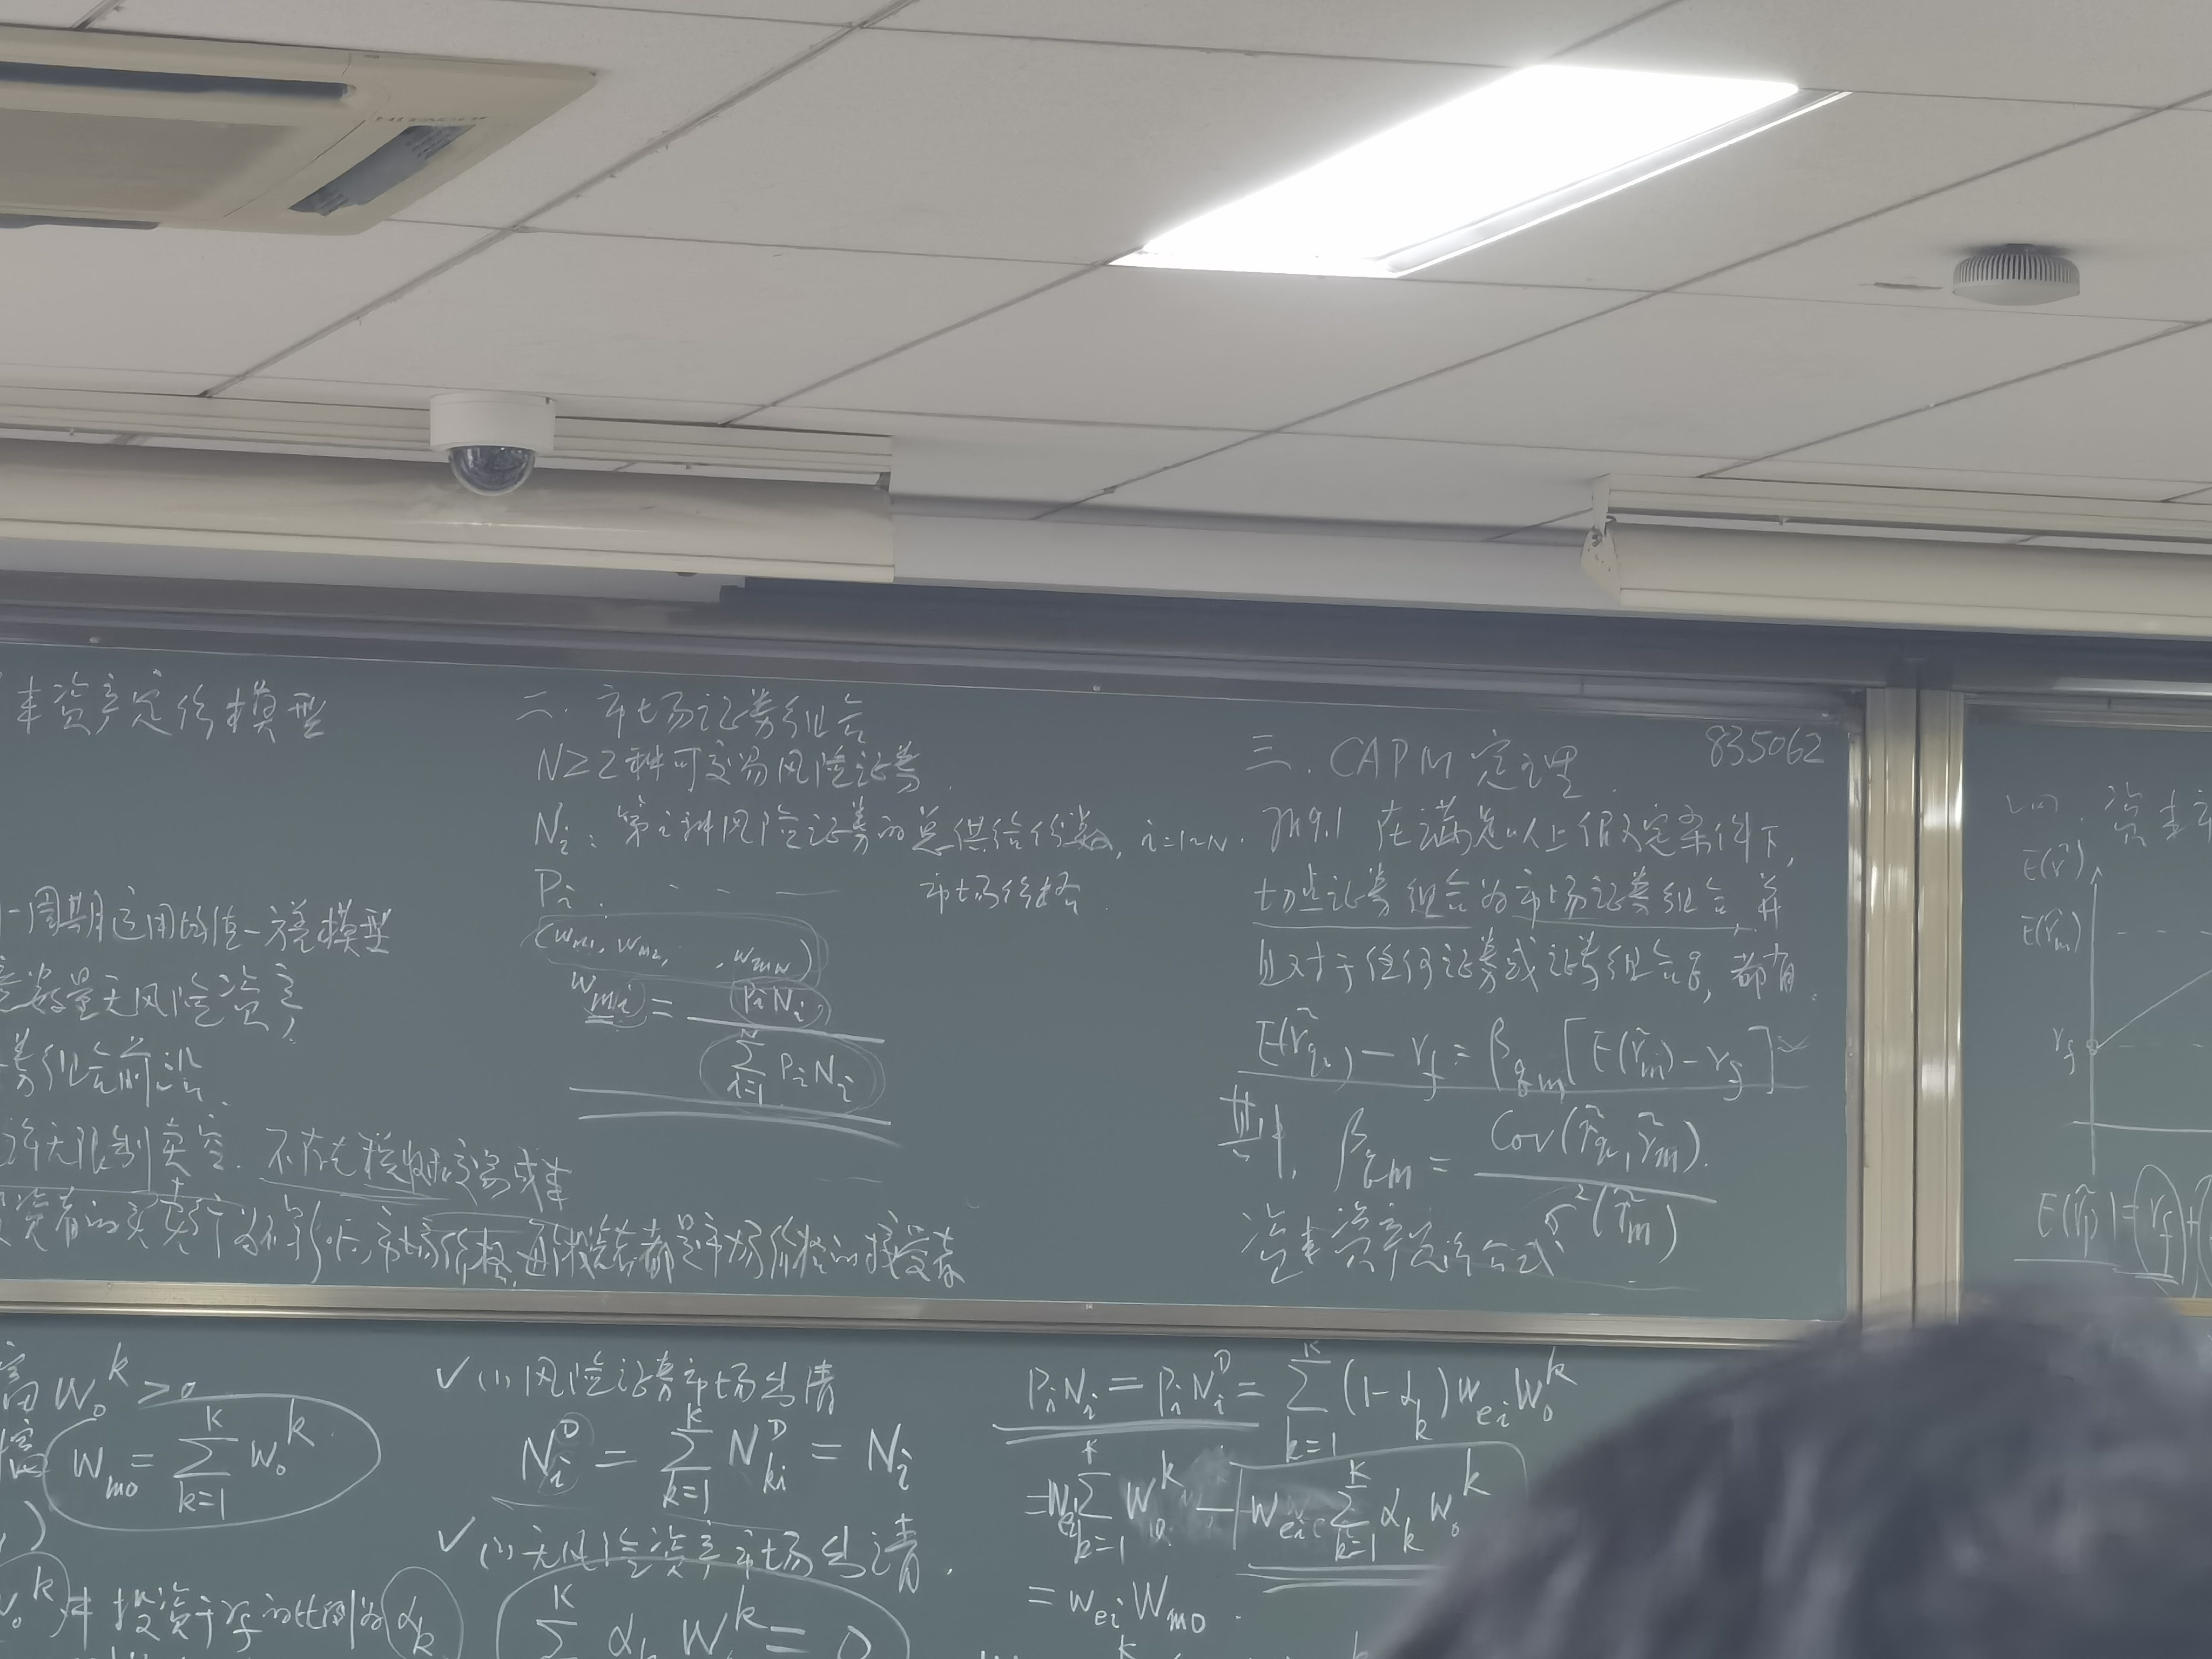 本资产定价模型
一周期运用均值-方差模型
意数量无风险资产
券组合前沿
许无限制卖空. 不存在税收和交易成本
投资者的买卖行为不影响市场价格, 所有投资者都是市场价格的接受者
二. 市场证券组合
N≥2种可交易风险证券.
N_i: 第i种风险证券的总供给份数, i=1~N.
P_i: - - — 市场价格.
(w_{m1}, w_{m2}, , w_{mN})
w_{mi} = P_i N_i / \sum_{i=1}^{N} P_i N_i
三. CAPM 定理
835062
在满足以上假定条件下,
切点证券组合为市场证券组合, 并
且对于任何证券或证券组合q, 都有.
E(\tilde{r}_q) - r_f = β_{qm} [E(\tilde{r}_m) - r_f]
其中, β_{qm} = Cov(\tilde{r}_q, \tilde{r}_m) / σ^2(\tilde{r}_m)
资本资产定价公式
四. 资本市
E(\tilde{r})
E(\tilde{r}_m)
r_f
E(\tilde{r}_p) = r_f +
富 W_0^k > 0
W_{m0} = \sum_{k=1}^{K} W_0^k
W_0^k 中投资于 r_f 的比例为 α_k
✓ (1) 风险证券市场出清
N_i^D = \sum_{k=1}^{K} N_{ki}^D = N_i
✓ (2) 无风险资产市场出清.
\sum^{K} α_k W^k = 0
P_i N_i = P_i N_i^D = \sum_{k=1}^{K} (1-α_k) w_{ei} W_0^k
= w_{ei} \sum_{k=1}^{K} W_0^k - w_{ei} \sum_{k=1}^{K} α_k W_0^k
= w_{ei} W_{m0}.